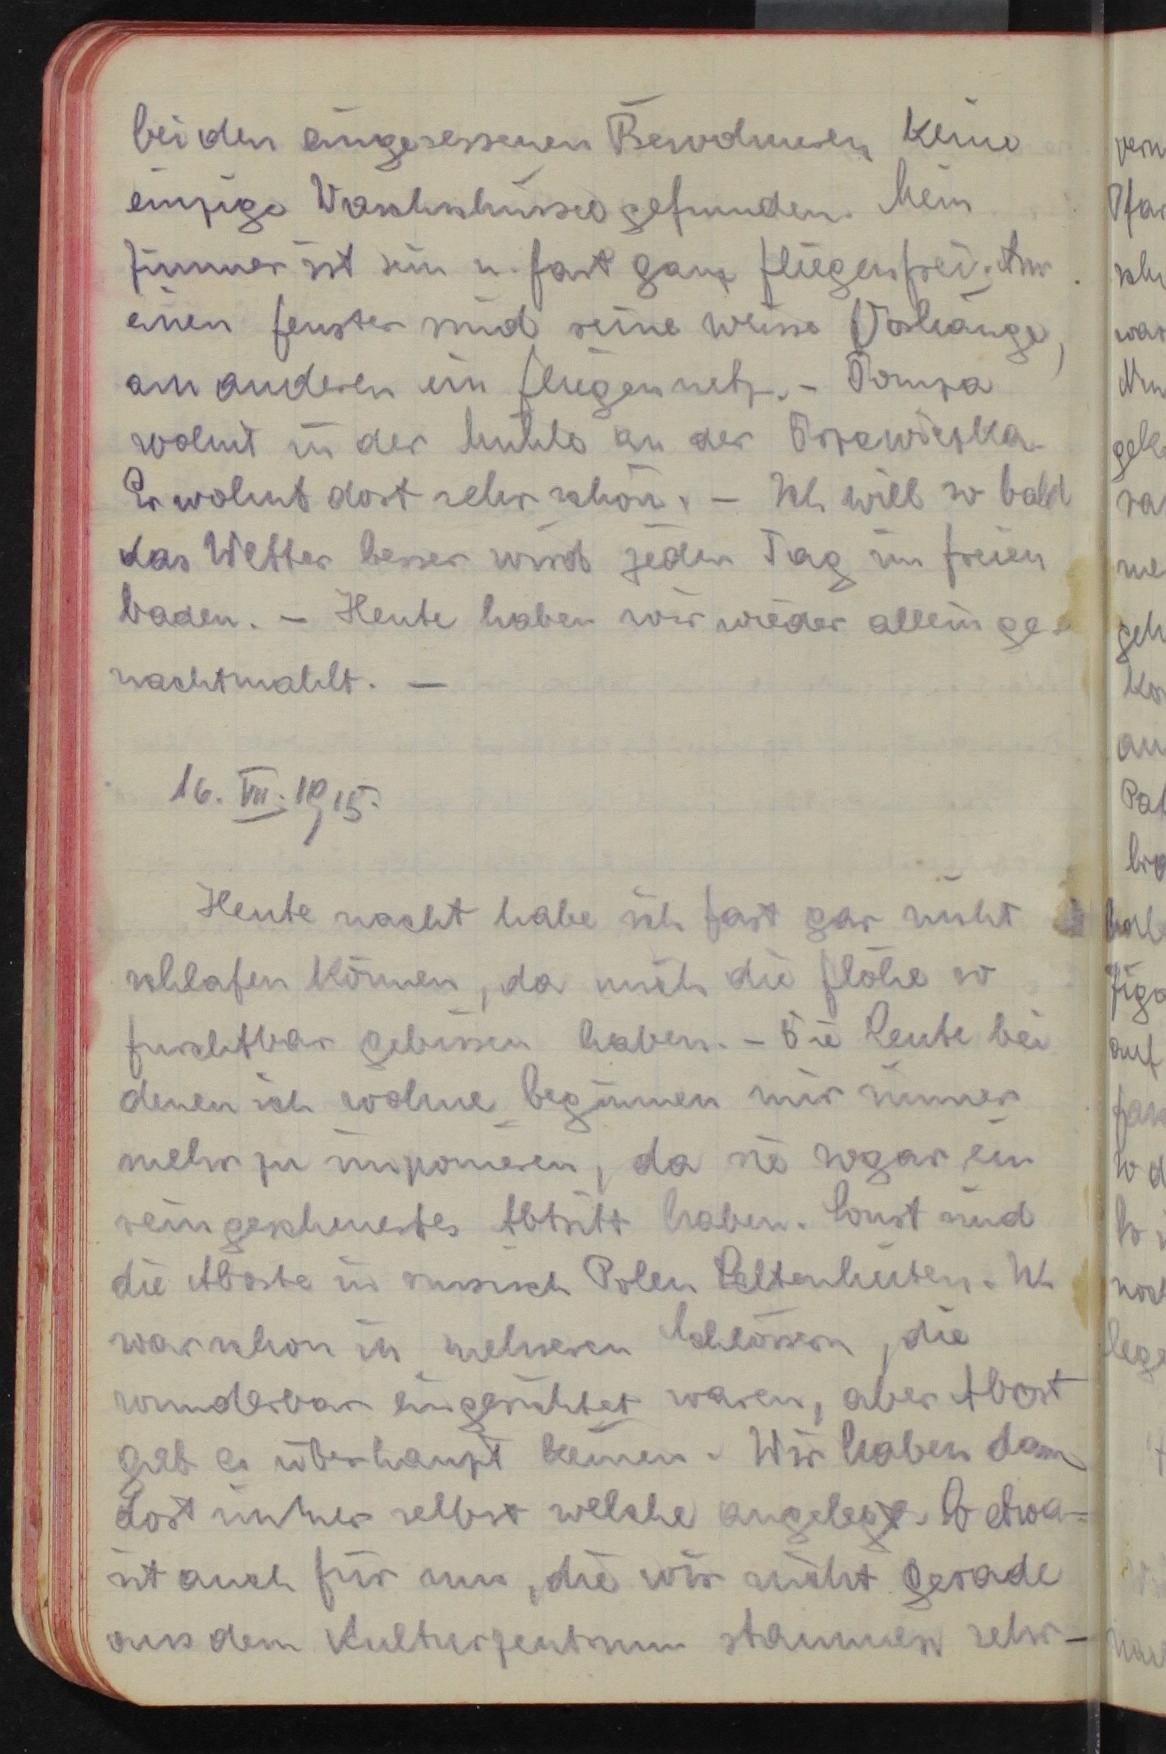 bei den eingesessenen Bewohnern keine
einzige Waschschüssel gefunden. Mein
Zimmer ist rein u. fast ganz fliegenfrei. Am
einen Fenster sind reine weisse Vorhänge,
am anderen ein Fliegennetz. –
wohnt in der Mühle an der
Er wohnt dort sehr schön. – Ich will so bald
das Wetter besser wird jeden Tag im freien
baden. – Heute haben wir wieder allein ge-
nachtmahlt. –
16. VII. 1915.
Heute nacht habe ich fast gar nicht
schlafen können, da mich die Flöhe so
furchtbar gebissen haben. – Die Leute bei
denen ich wohne beginnen mir immer
mehr zu imponieren, da sie sogar ein
reingescheuertes Abtritt haben. Sonst sind
die Aborte in russisch Polen Seltenheiten. Ich
war schon in mehreren Schlössern, die
wunderbar eingerichtet waren, aber Abort
gab es überhaupt keinen. Wir haben dann
dort immer selbst welche angelegt. So etwas
ist auch für uns, die wir nicht gerade
aus dem Kulturzentrum stammen sehr –